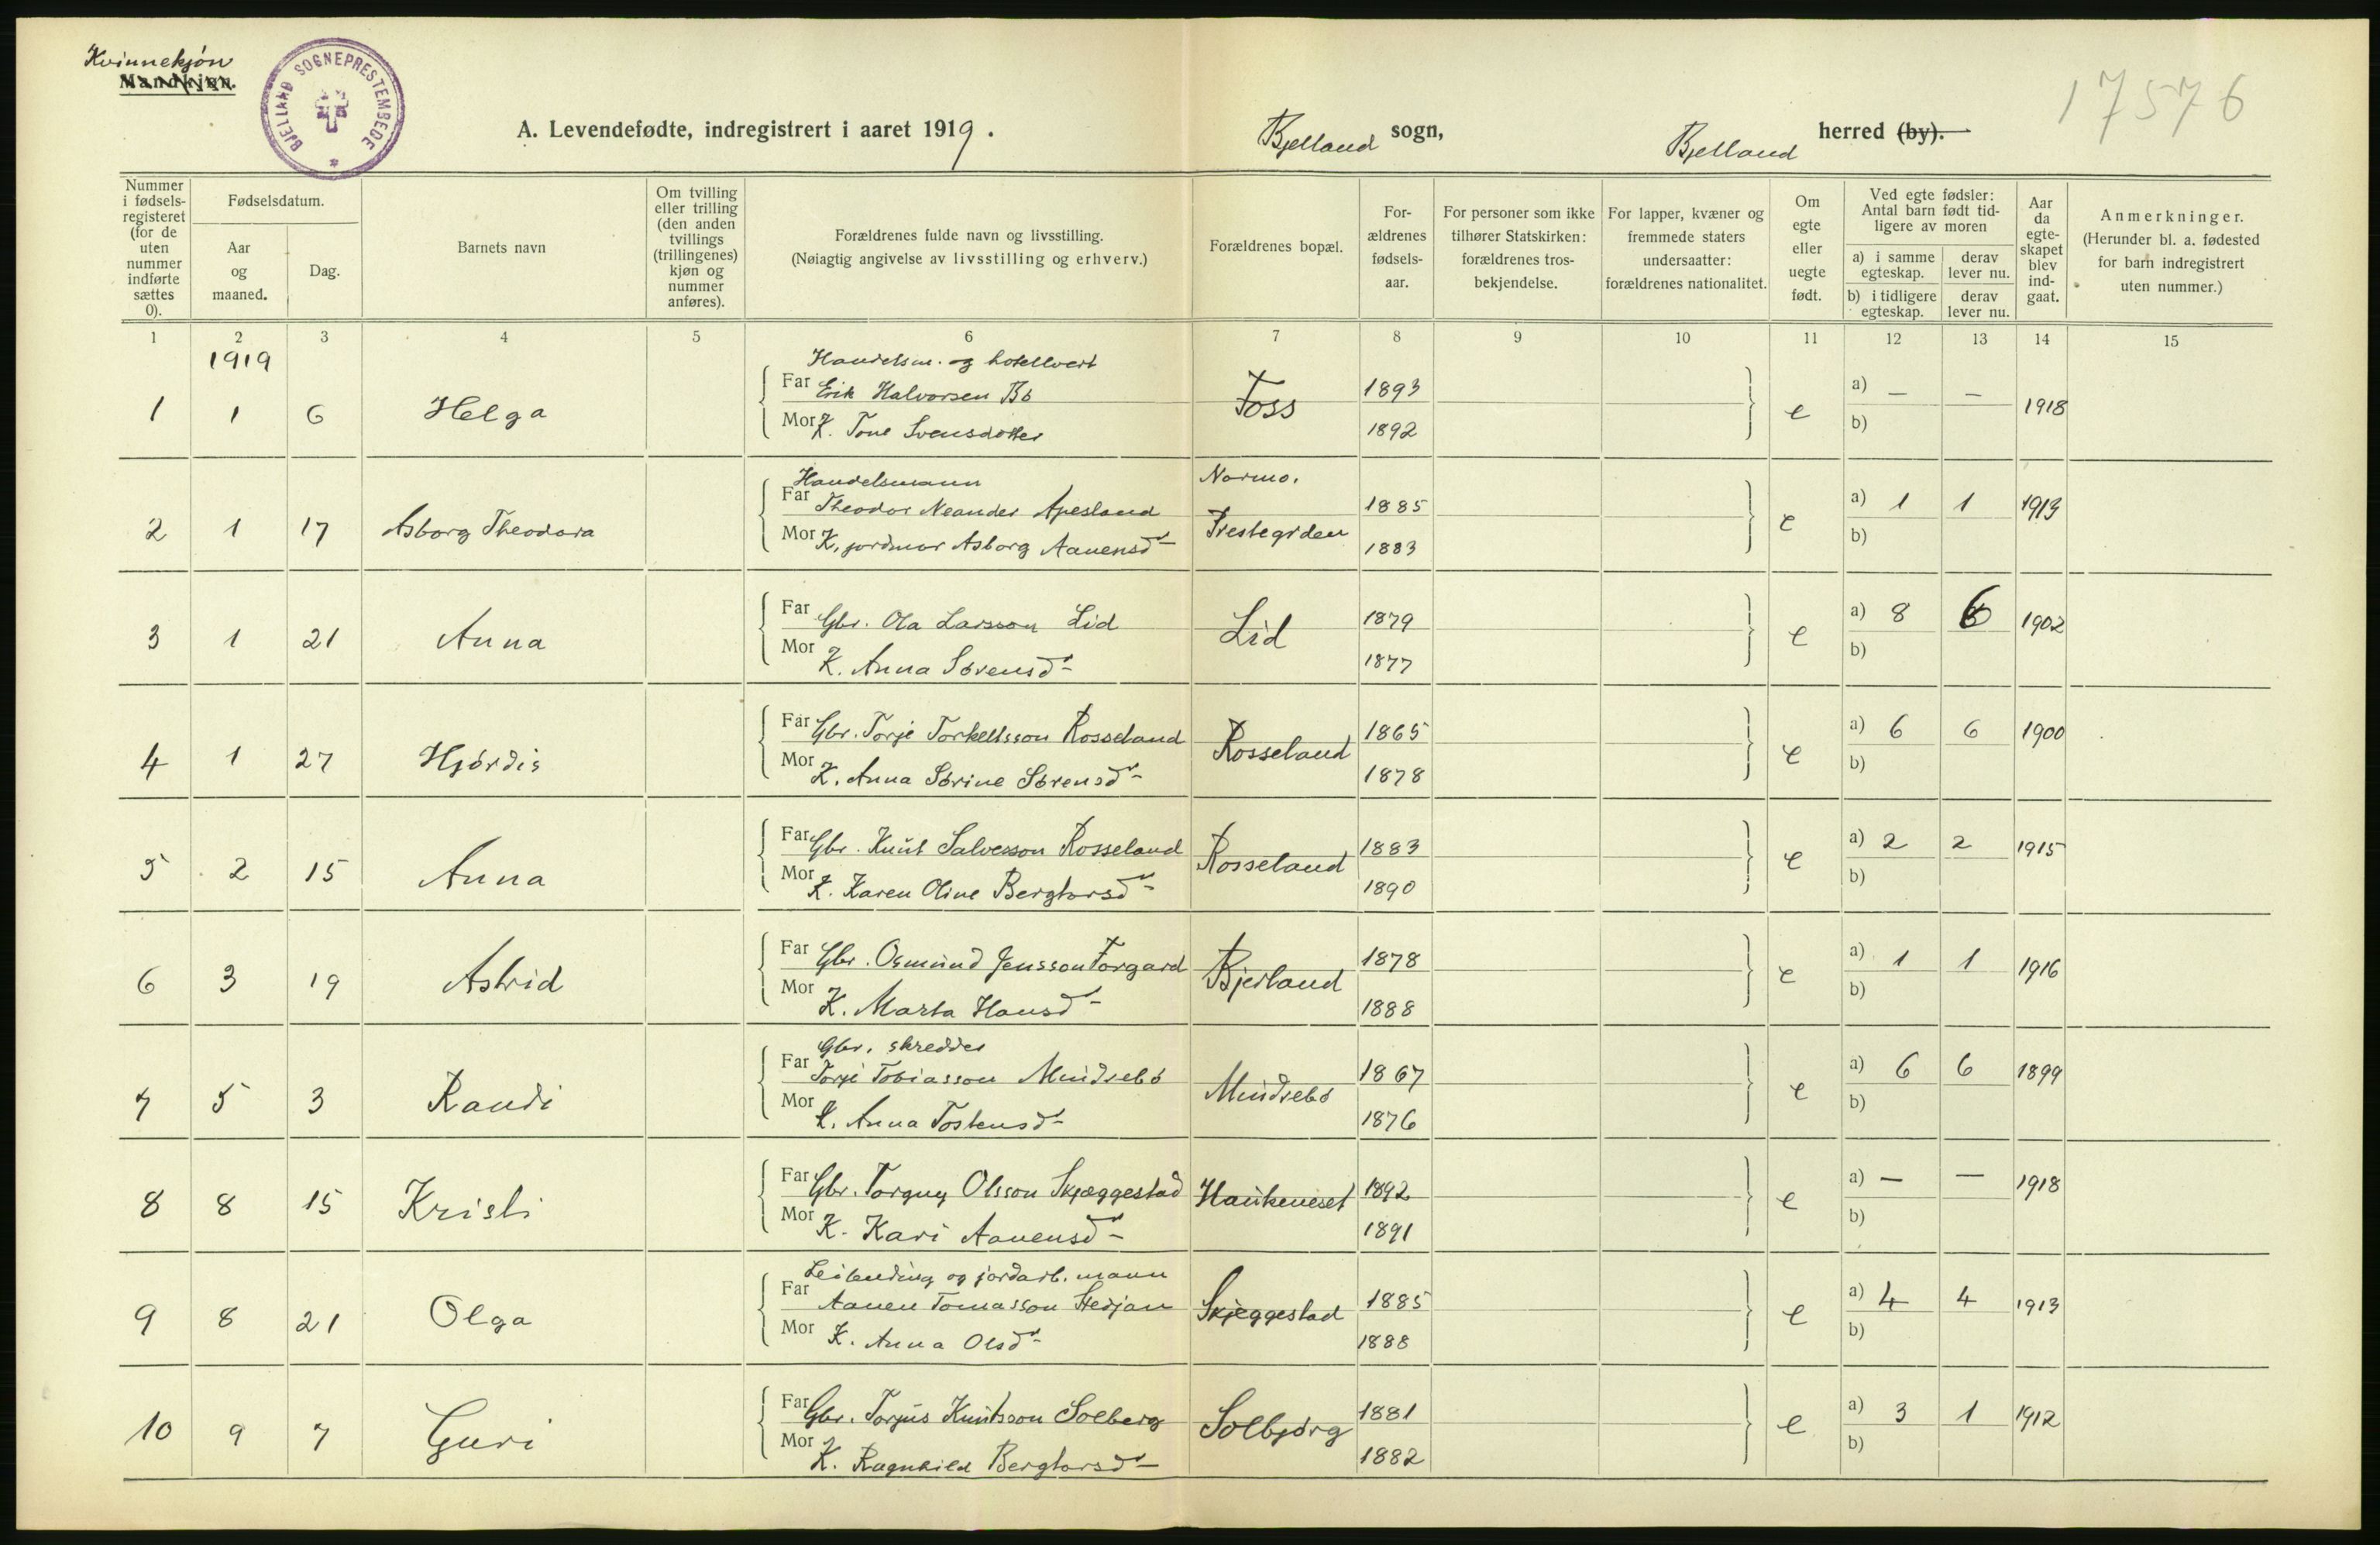 Kvinnekjøn
Mandkjøn.
BJELLAND SOGNEPRESTEMBEDE
17576
A. Levendefødte, indregistrert i aaret 1919.
Bjelland sogn,
Bjelland herred (by).
Nummer i fødselsregisteret (for de uten nummer indførte sættes 0).
Fødselsdatum.
Aar og maaned.
Dag.
Barnets navn
Om tvilling eller trilling (den anden tvillings (trillingenes) kjøn og nummer anføres).
Forældrenes fulde navn og livsstilling.
(Nøiagtig angivelse av livsstilling og erhverv.)
Forældrenes bopæl.
Forældrenes fødselsaar.
For personer som ikke tilhører Statskirken: forældrenes trosbekjendelse.
For lapper, kvæner og fremmede staters undersaatter: forældrenes nationalitet.
Om egte eller uegte født.
Ved egte fødsler: Antal barn født tidligere av moren
a) i samme egteskap.
derav lever nu.
b) i tidligere egteskap.
derav lever nu.
Aar da egteskapet blev indgaat.
Anmerkninger.
(Herunder bl. a. fødested for barn indregistrert uten nummer.)
1 2 3 4 5 6 7 8 9 10 11 12 13 14 15
1919
Handelsm. og hotellvert
1 1 6 Helga Far Erik Halvorsen Bö Foss 1893 e a) — — 1918
Mor K. Tone Svensdotter 1892 b)
Handelsmann Normo.
2 1 17 Asborg Theodora Far Theodor Neander Apesland Prestegrden 1885 e a) 1 1 1913
Mor K. jordmor Asborg Aanensd- 1883 b)
3 1 21 Anna Far Gbr. Ola Larsson Lid Lid 1879 e a) 8 6 1902
Mor K. Anna Sörensd- 1877 b)
4 1 27 Hjördis Far Gbr. Torje Torkellsson Rosseland Rosseland 1865 e a) 6 6 1900
Mor K. Anna Sörine Sörensd- 1878 b)
5 2 15 Anna Far Gbr. Knut Salvesson Rosseland Rosseland 1883 e a) 2 2 1915
Mor K. Karen Oline Bergtorsd- 1890 b)
6 3 19 Astrid Far Gbr. Osmund Jensson Forgard Bjelland 1878 e a) 1 1 1916
Mor K. Marta Hansd- 1888 b)
Gbr. skredder
7 5 3 Randi Far Torje Tobiasson Mindrebö Mindrebö 1867 e a) 6 6 1899
Mor K. Anna Tostensd- 1876 b)
8 8 15 Kristi Far Gbr. Torguy Olsson Skjæggestad Haukeneset 1892 e a) — — 1918
Mor K. Kari Aanensd- 1891 b)
Leilending og jordarb. mann
9 8 21 Olga Far Aanen Tomasson Stedjan Skjeggestad 1885 e a) 4 4 1913
Mor K. Anna Olsd- 1888 b)
10 9 7 Guri Far Gbr. Torjus Knutsson Solberg Solbjörg 1881 e a) 3 1 1912
Mor K. Ragnhild Bergtorsd- 1882 b)